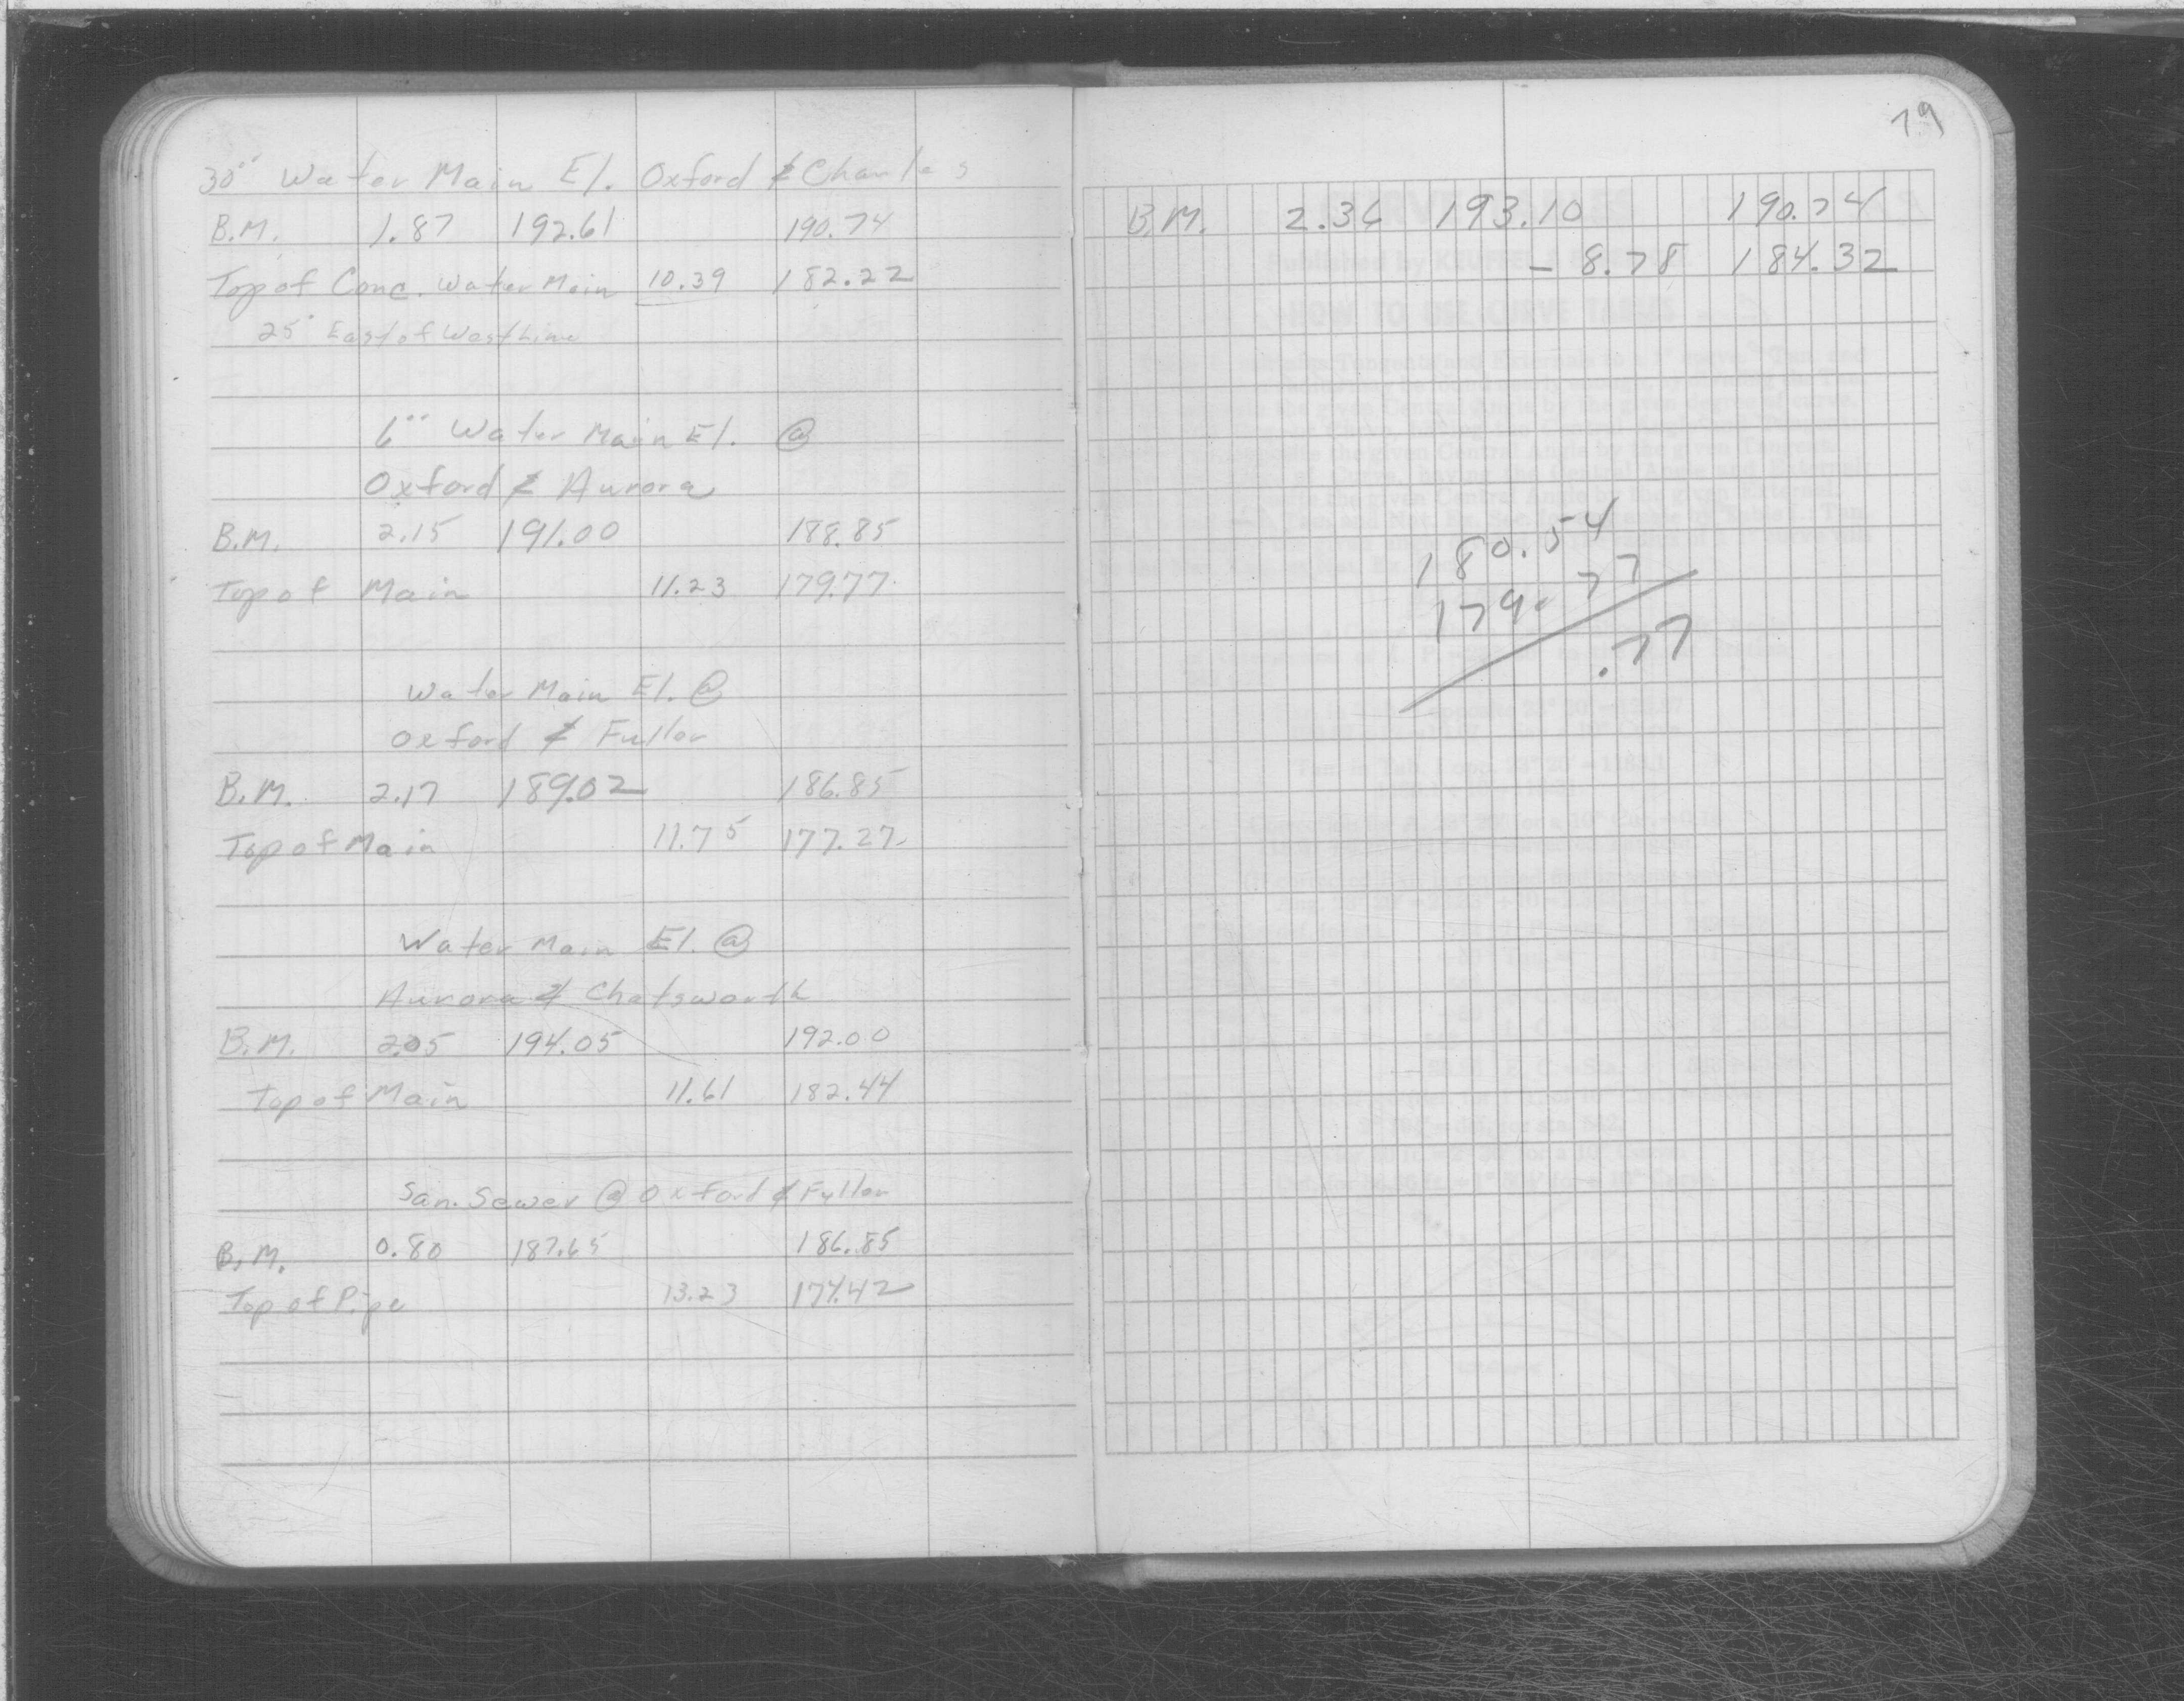 30" Water Main El. Oxford & Charles
B.M. 1.87 192.61 190.74
Top of Conc. Water Main 10.39 182.22
25' East of West Line
6" Water Main El. @
Oxford & Aurora
B.M. 2.15 191.00 188.85
Top of Main 11.23 179.77
Water Main El. @
Oxford & Fuller
B.M. 2.17 189.02 186.85
Top of Main 11.75 177.27
Water Main El. @
Aurora & Chatsworth
B.M. 2.05 194.05 192.00
Top of Main 11.61 182.44
San. Sewer @ Oxford & Fuller
B.M. 0.80 187.65 186.85
Top of Pipe 13.23 174.42
79
B.M. 2.36 193.10 190.74
- 8.78 184.32
180.54
179.77
.77